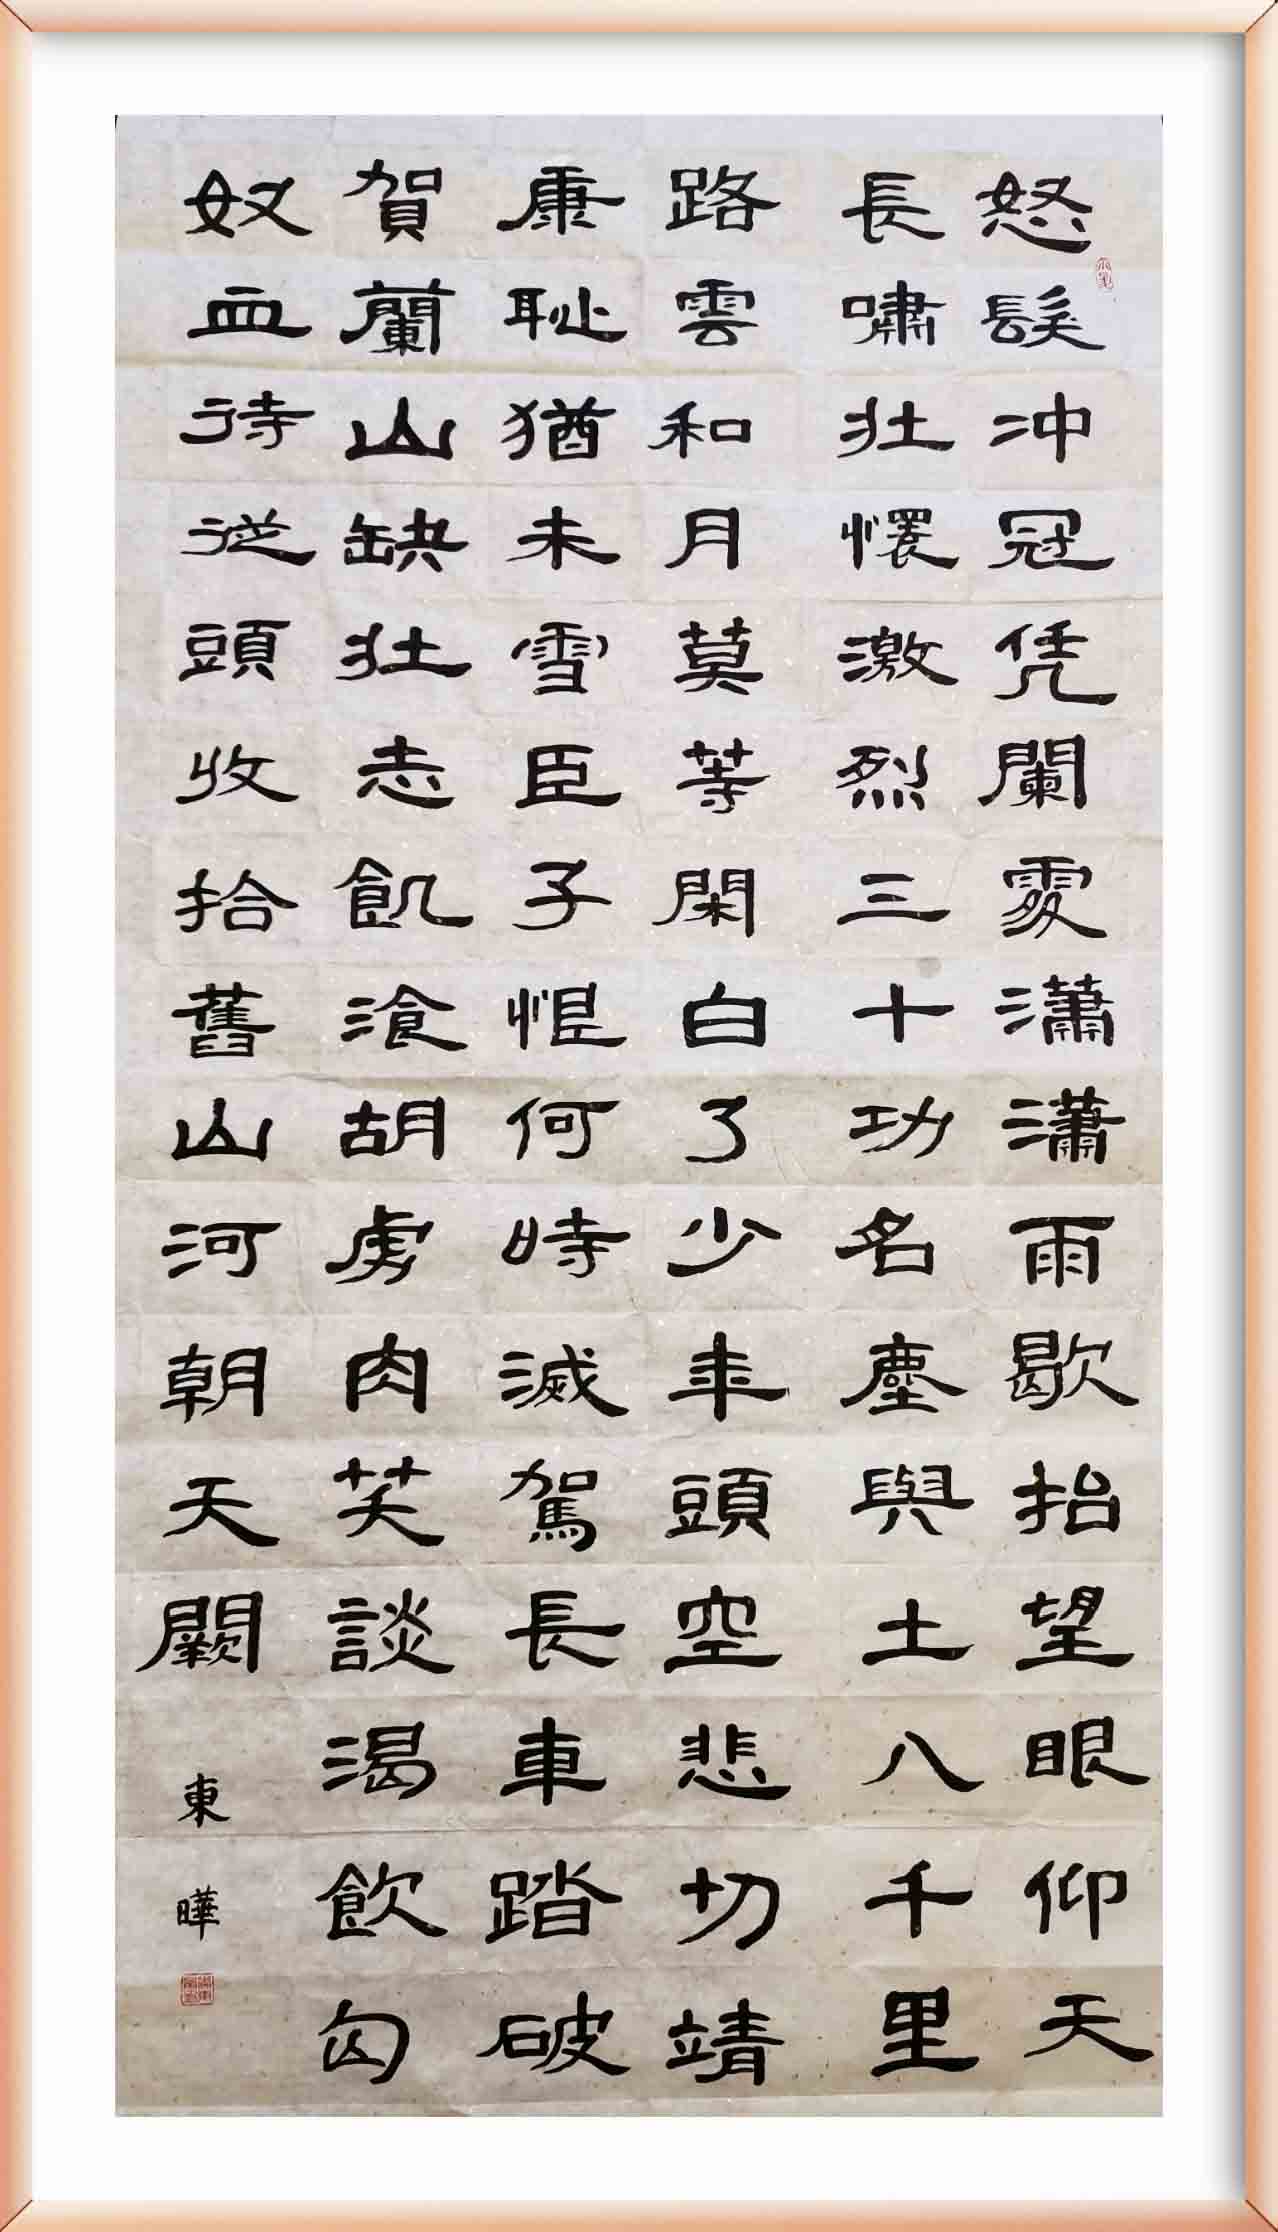 怒髮冲冠凭闌處瀟瀟雨歇抬望眼仰天
長嘯壮懷激烈三十功名塵與土八千里
路雲和月莫等閑白了少年頭空悲切靖
康恥猶未雪臣子恨何時滅駕長車踏破
賀蘭山缺壮志飢湌胡虜肉笑談渴飲匈
奴血待從頭收拾舊山河朝天闕
東曄